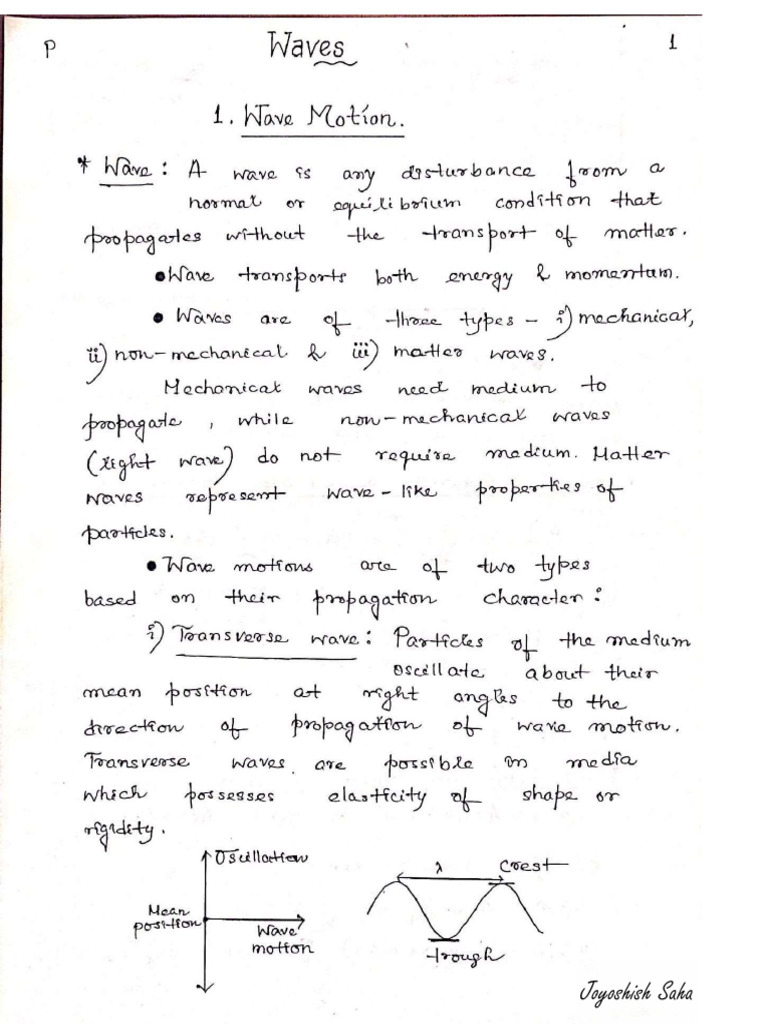 P Waves 1
1. Wave Motion.
* Wave : A wave is any disturbance from a
normal or equilibrium condition that
propagates without the transport of matter.
• Wave transports both energy & momentum.
• Waves are of three types - i) mechanical,
ii) non-mechanical & iii) matter waves.
Mechanical waves need medium to
propagate, while non-mechanical waves
(Light wave) do not require medium. Matter
waves represent wave-like properties of
particles.
• Wave motions are of two types
based on their propagation character :
i) Transverse wave : Particles of the medium
oscillate about their
mean position at right angles to the
direction of propagation of wave motion.
Transverse waves are possible in media
which possesses elasticity of shape or
rigidity.
Oscillation
Mean
position
Wave
motion
λ
Crest
trough
Joyoshish Saha